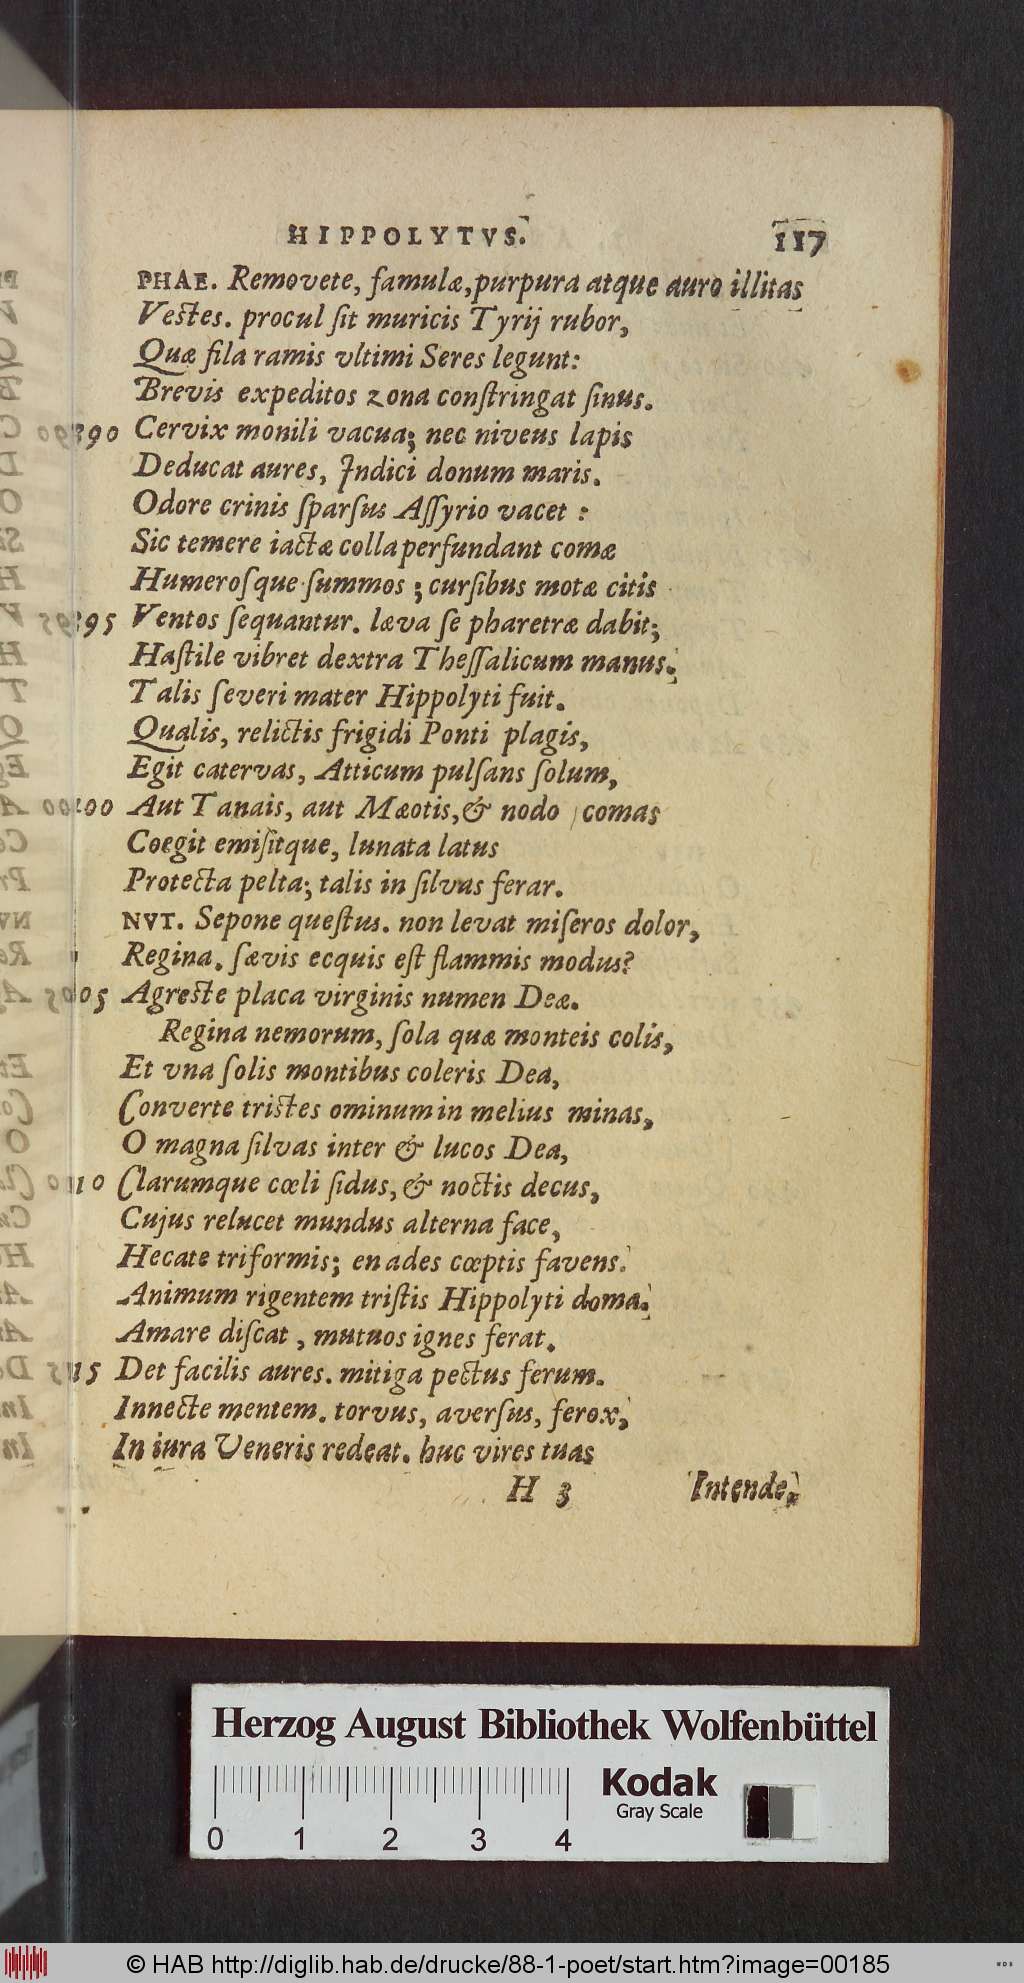 HIPPOLYTVS. 117
PHAE. Removete, famulæ, purpura atque auro illitas
Vestes. procul ſit muricis Tyrij rubor,
Quæ fila ramis vltimi Seres legunt:
Brevis expeditos zona conſtringat ſinus.
390 Cervix monili vacua; nec niveus lapis
Deducat aures, Indici donum maris.
Odore crinis ſparſus Aſſyrio vacet :
Sic temere iactæ colla perfundant comæ
Humeroſque ſummos ; curſibus motæ citis
395 Ventos ſequantur. læva ſe pharetræ dabit;
Haſtile vibret dextra Theſſalicum manus.
Talis ſeveri mater Hippolyti fuit.
Qualis, relictis frigidi Ponti plagis,
Egit catervas, Atticum pulſans ſolum,
400 Aut Tanais, aut Mæotis, & nodo comas
Coegit emiſitque, lunata latus
Protecta pelta; talis in ſilvas ferar.
NVT. Sepone queſtus. non levat miſeros dolor,
Regina. ſævis ecquis eſt flammis modus?
405 Agreste placa virginis numen Deæ.
Regina nemorum, ſola quæ monteis colis,
Et vna ſolis montibus coleris Dea,
Converte tristes ominum in melius minas,
O magna ſilvas inter & lucos Dea,
410 Clarumque cœli ſidus, & noctis decus,
Cujus relucet mundus alterna face,
Hecate triformis; en ades cœptis favens.
Animum rigentem triſtis Hippolyti doma.
Amare diſcat , mutuos ignes ferat.
415 Det facilis aures. mitiga pectus ferum.
Innecte mentem. torvus, averſus, ferox,
In iura Veneris redeat. huc vires tuas
H 3 Intende,
Herzog August Bibliothek Wolfenbüttel
Kodak
Gray Scale
0 1 2 3 4
© HAB http://diglib.hab.de/drucke/88-1-poet/start.htm?image=00185